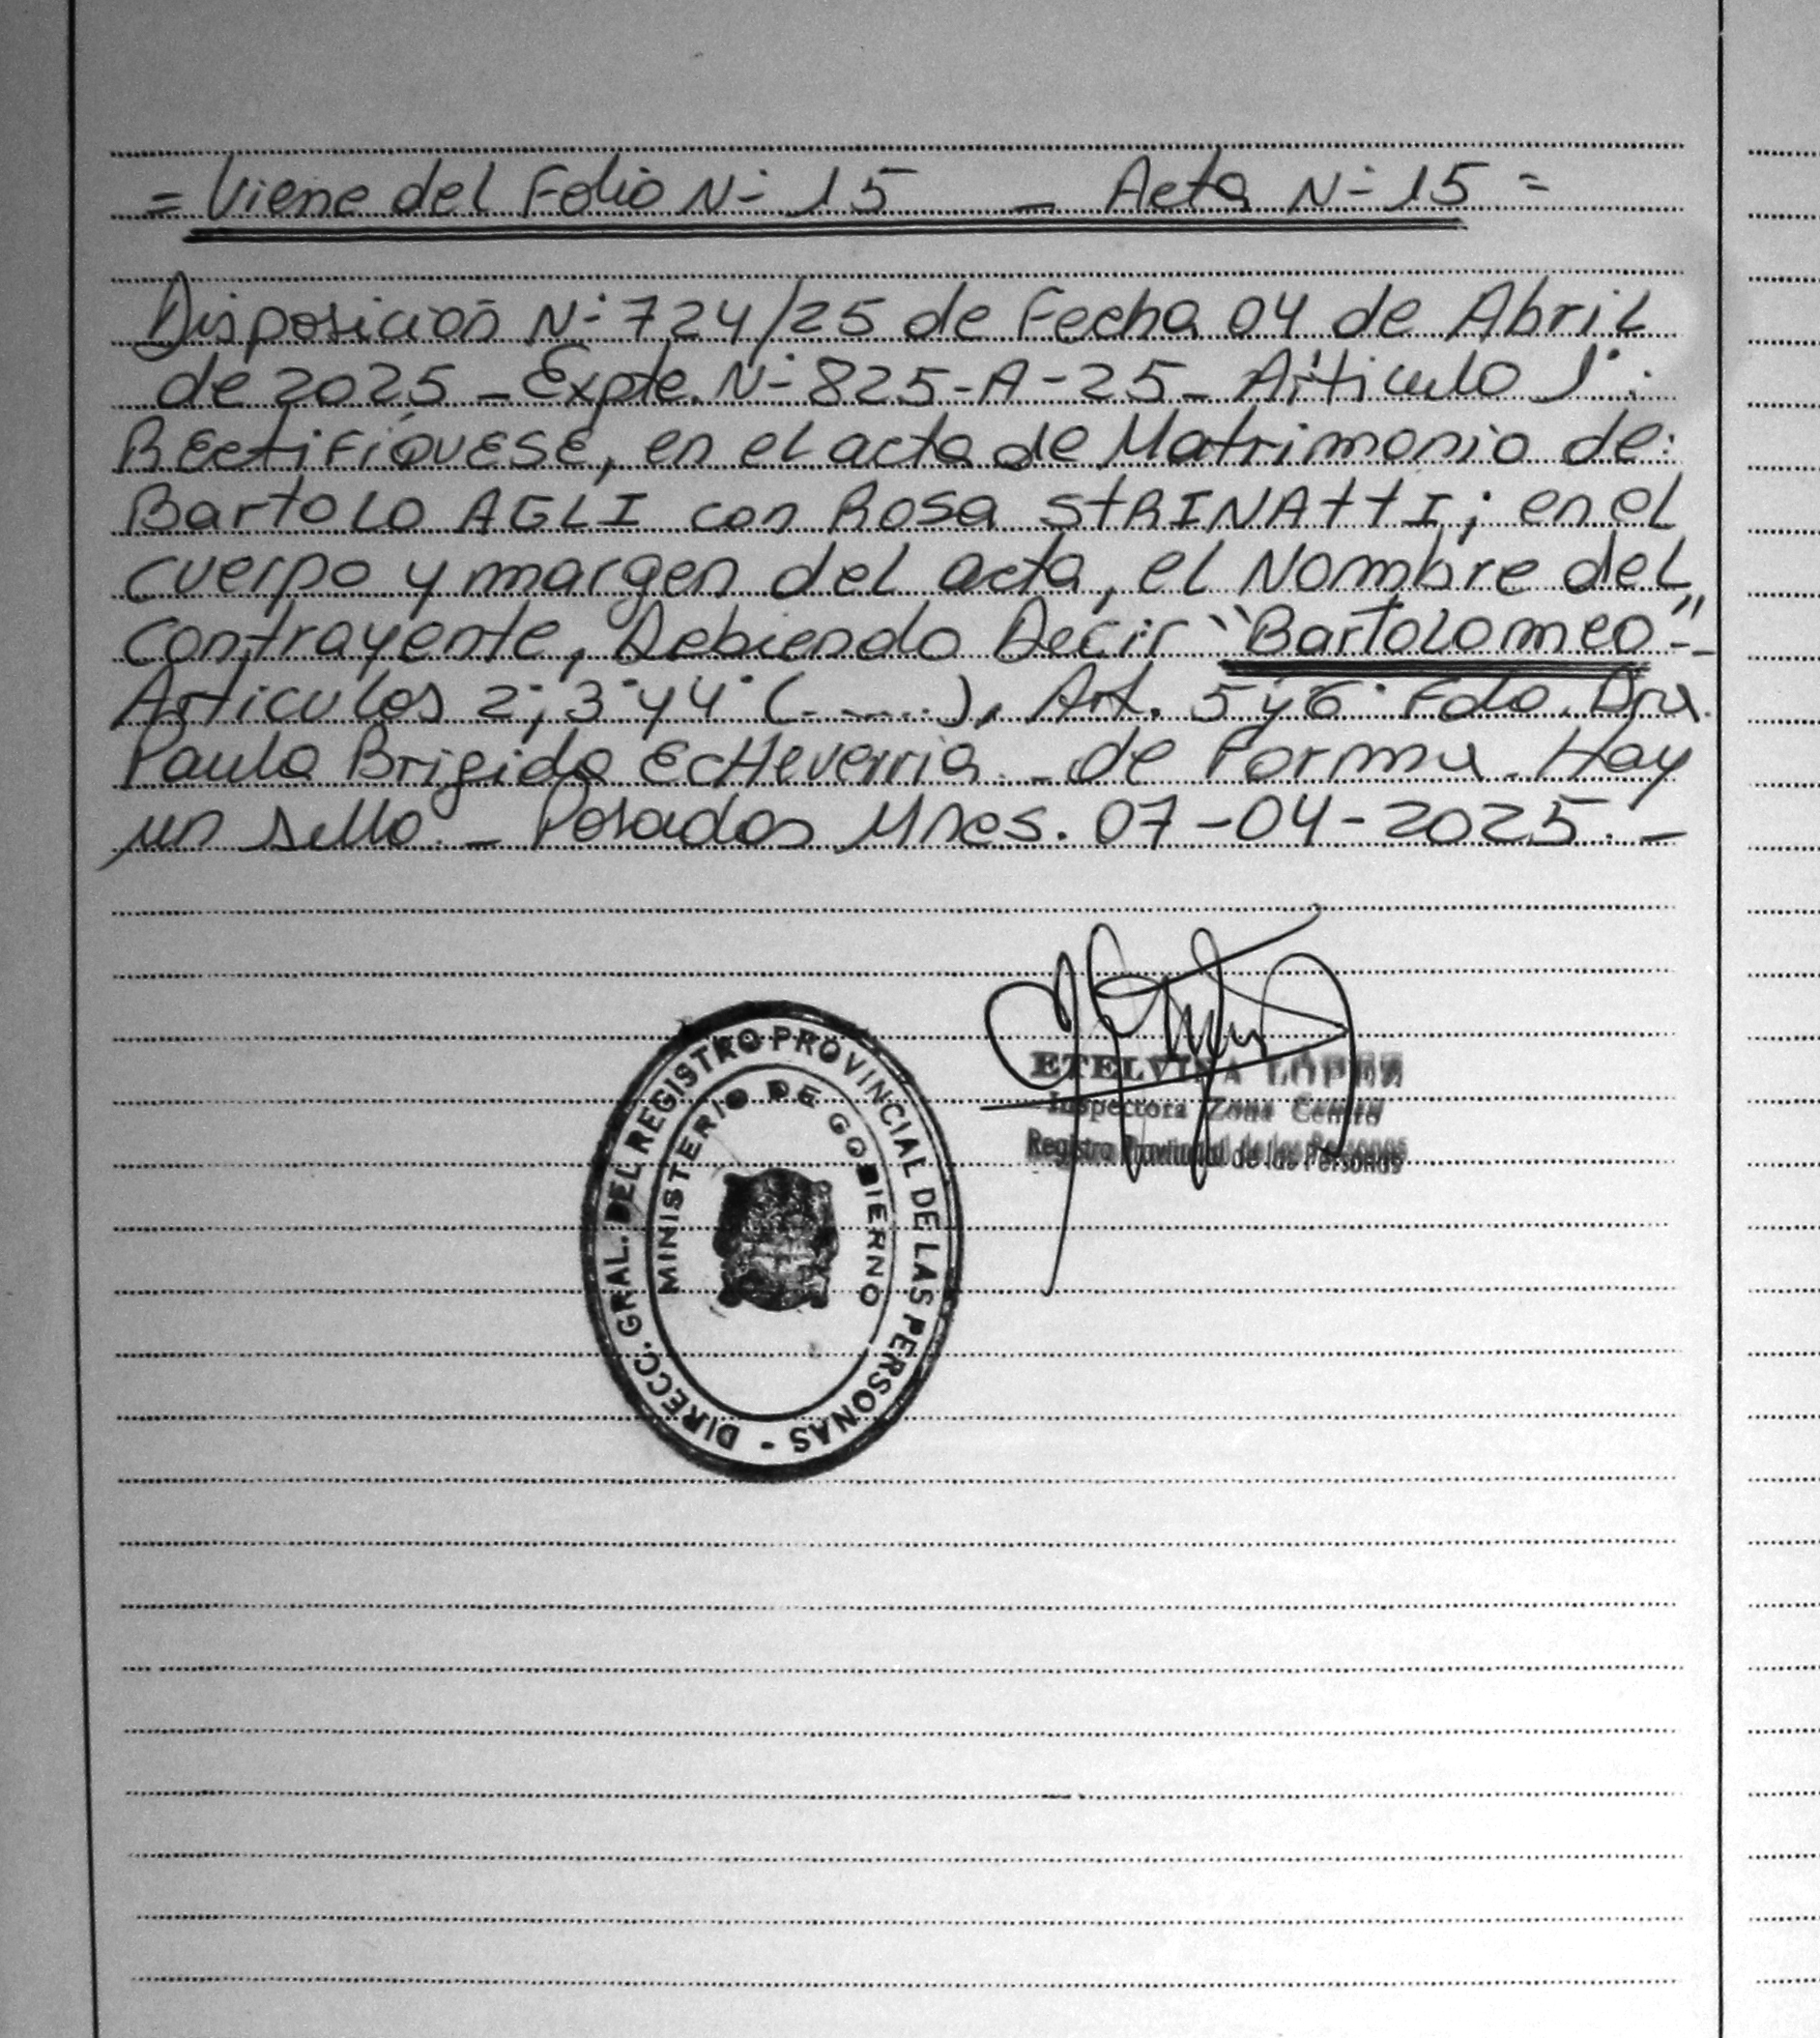 = Viene del Folio N° 15 _ Acta N° 15 =
Disposición N° 724/25 de Fecha 04 de Abril
de 2025 _ Expte. N° 825-A-25 _ Artículo 1°:
RECTIFÍQUESE, en el acta de Matrimonio de:
Bartolo AGLI con Rosa STRINATTI; en el
cuerpo y margen del acta, el Nombre del
contrayente, Debiendo Decir "Bartolomeo" _
Artículos 2°, 3° y 4° (......), Art. 5 y 6° Fdo. Dra.
Paula Brigida Echeverria _ de Forma. Hay
un sello. _ Posadas Mnes. 07-04-2025. _
DIRECC. GRAL. DEL REGISTRO PROVINCIAL DE LAS PERSONAS -
MINISTERIO DE GOBIERNO
ETELVINA LOPEZ
Inspectora Zona Centro
Registro Provincial de las Personas